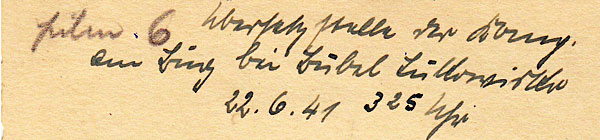 Film 6 Übersetzstelle der Komp.
am Bug bei Bubel Lukowiska
22.6.41 3 25 Uhr